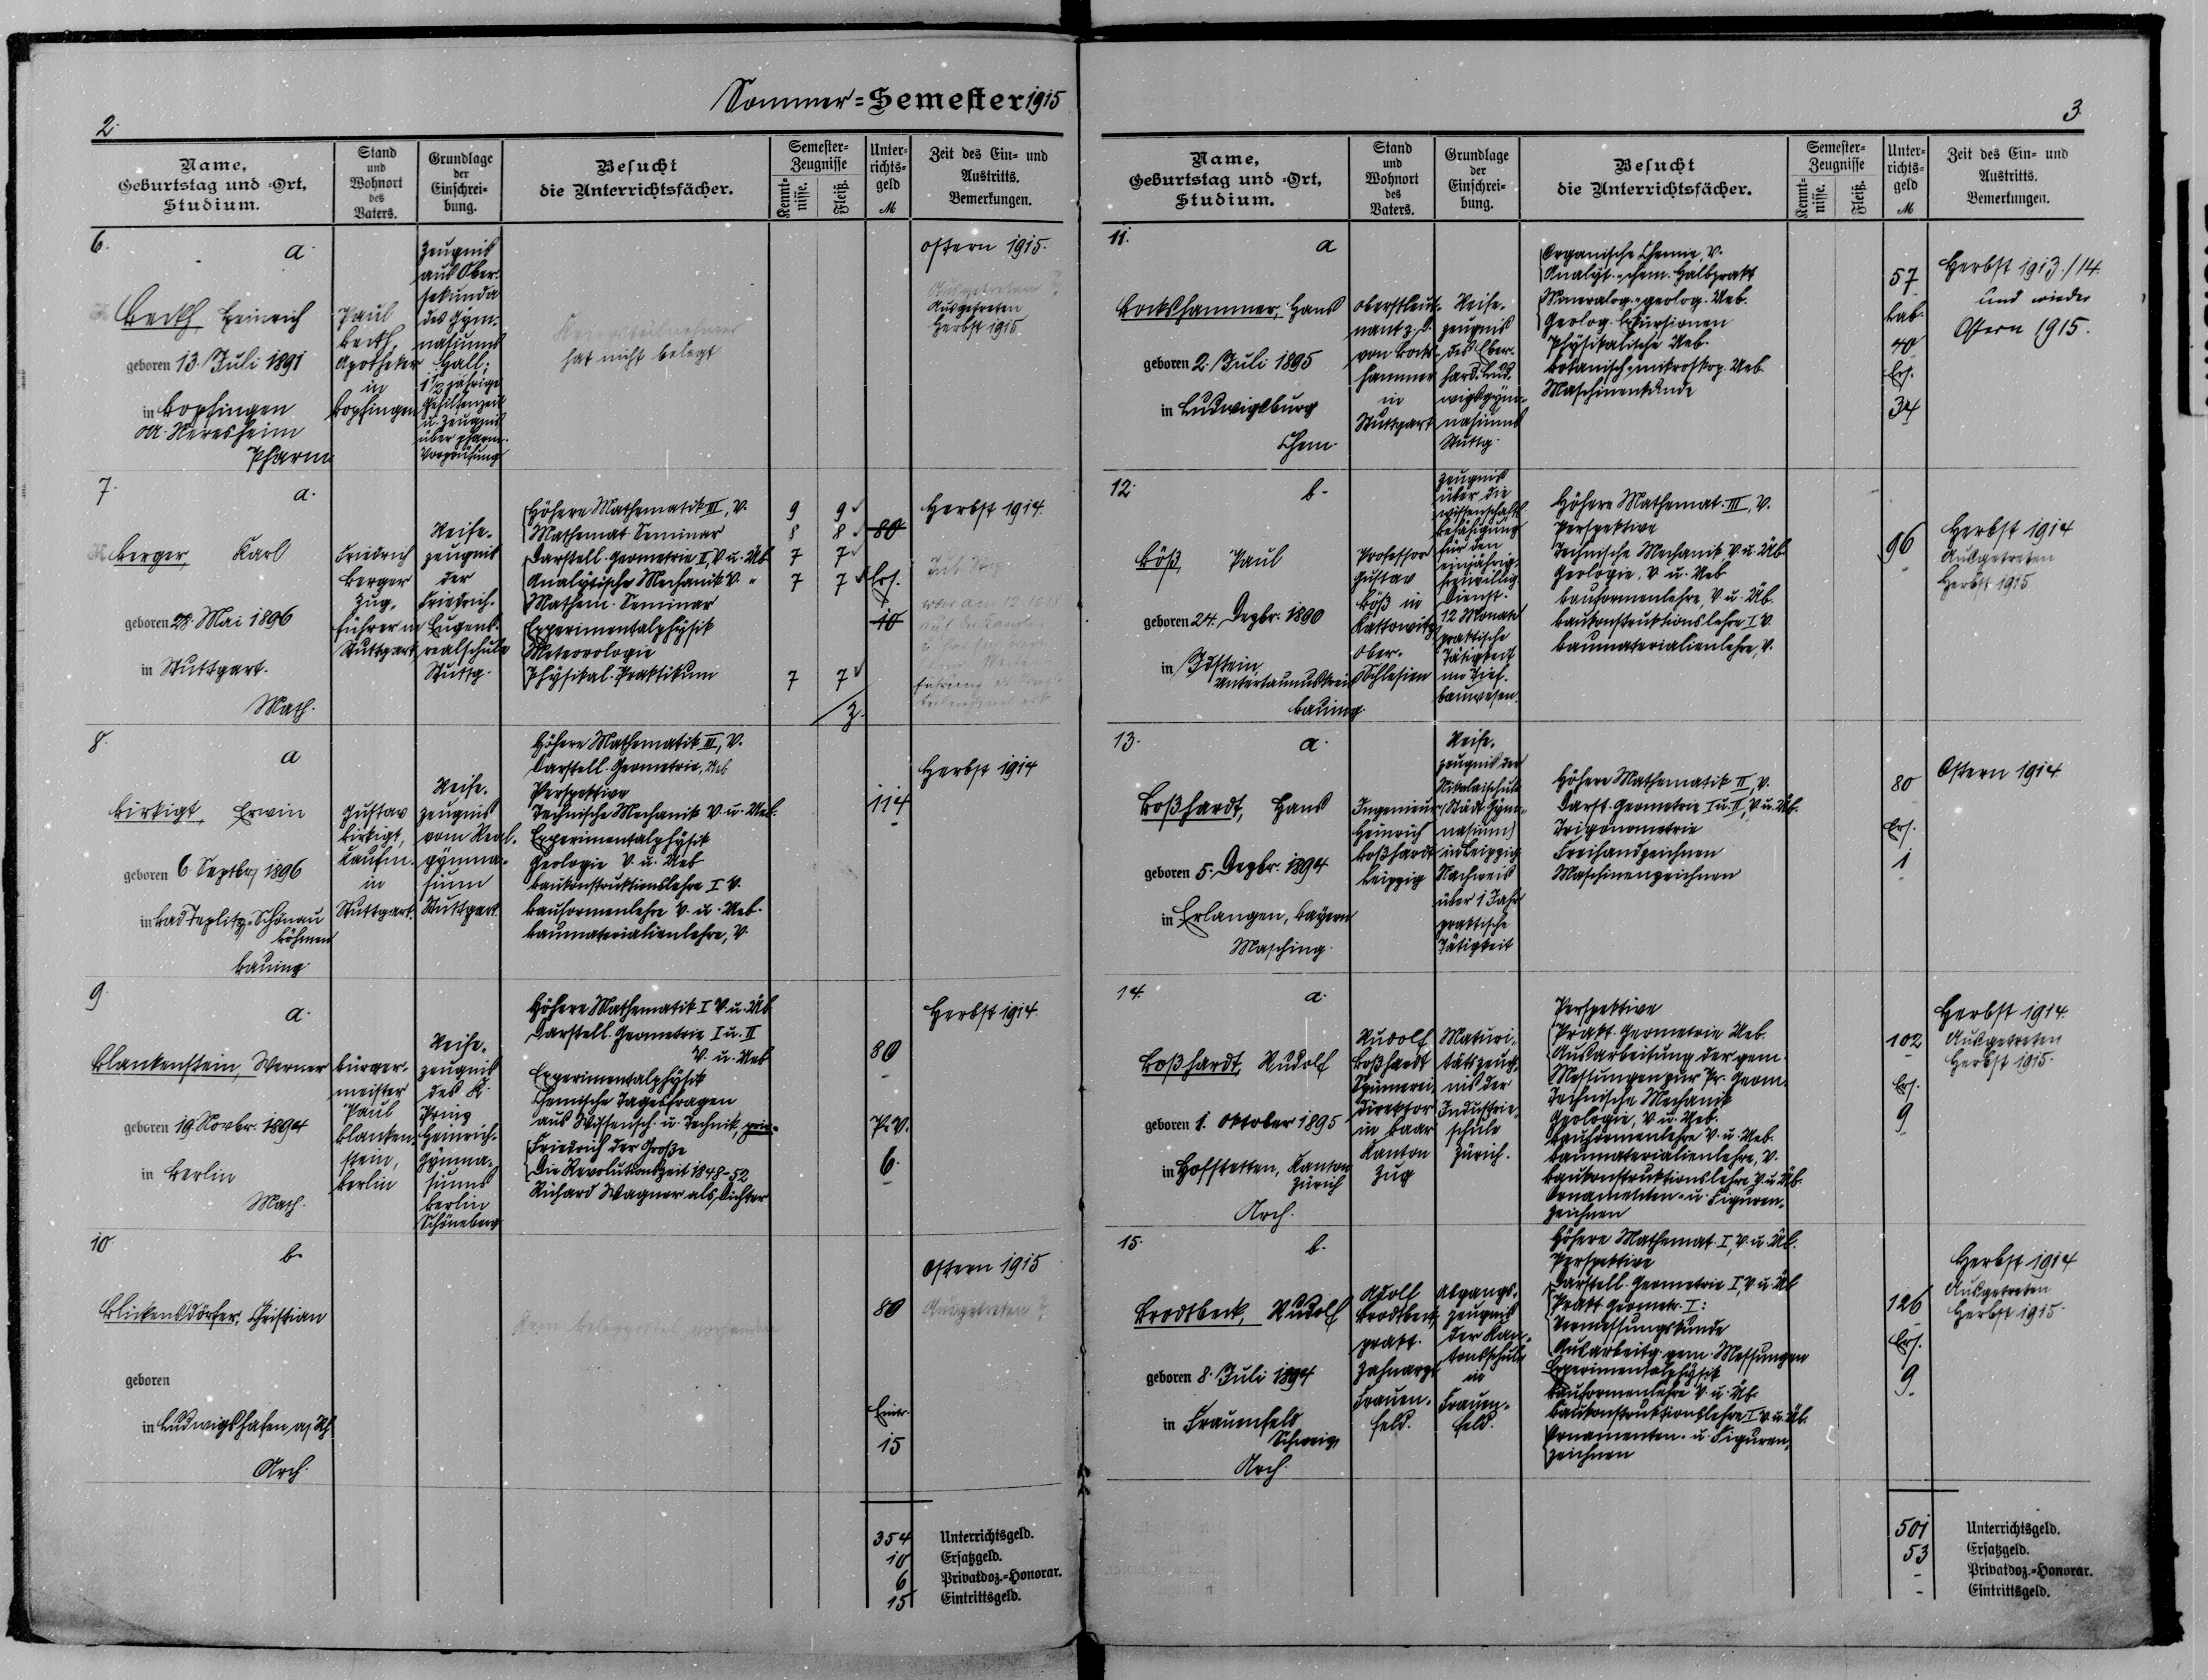 2.
Sommer=Semester 1915
Name,
Geburtstag und =Ort,
Studium.
Stand
und
Wohnort
des
Vaters.
Grundlage
der
Einschrei-
bung.
Besucht
die Unterrichtsfächer.
Semester-
Zeugnisse
Kennt-
nisse.
Fleiß.
Unter-
richts-
geld
M
Zeit des Ein= und
Austritts.
Bemerkungen.
6.
a.
Berth Heinrich
geboren 13. Juli 1891
in Bopfingen
OA. Neresheim
Pharm.
Paul
Berth,
Apotheker
in
Bopfingen
Zeugnis
aus Ober-
sekunda
des Gym-
nasiums
Hall;
1 1/2 jährige
Gehilfenzeit
u. Zeugnis
über pharm.
Vorprüfung
Kriegsteilnehmer
hat nicht belegt
Ostern 1915.
Ausgetreten
Herbst 1915.
7.
a.
Berger, Karl
geboren 28. Mai 1896
in Stuttgart.
Math.
Friedrich
Berger
Zug-
führer in
Stuttgart
Reife-
zeugnis
der
Friedrich-
Eugens-
realschule
Stuttg.
Höhere Mathematik III, V. 9 9
Mathemat. Seminar 8 8
Darstell. Geometrie I, V. u. Üb. 7 7
Analytische Mechanik V. 7 7
Mathem. Seminar
Experimentalphysik
Meteorologie
Physikal. Praktikum 7 7
80
Ers.
10
Herbst 1914.
8.
a
Birkigt, Erwin
geboren 6. Septbr. 1896
in Bad Teplitz-Schönau
Böhmen
Bauing.
Gustav
Birkigt,
Kaufm.
in
Stuttgart.
Reife-
zeugnis
vom Real-
gymna-
sium
Stuttgart.
Höhere Mathematik III, V.
Darstell. Geometrie, Ueb.
Perspektive
Technische Mechanik V. u. Ueb.
Experimentalphysik
Geologie V. u. Ueb.
Baukonstruktionslehre I V.
Bauformenlehre V. u. Ueb.
Baumaterialienlehre, V.
114
Herbst 1914
9.
a.
Blankenstein, Werner
geboren 19. Novbr. 1894
in Berlin
Math.
Bürger-
meister
Paul
Blanken-
stein,
Berlin
Reife-
zeugnis
des K.
Prinz
Heinrich-
Gymna-
siums
Berlin
Schöneberg
Höhere Mathematik I V. u. Üb.
Darstell. Geometrie I u. II
V. u. Ueb.
Experimentalphysik
Chemische Tagesfragen
aus Wissensch. u. Technik,
Friedrich der Große
Die Revolutionszeit 1848-52
Richard Wagner als Dichter
80
6.
Herbst 1914.
10.
b.
Blickensdörfer, Christian
geboren
in Ludwigshafen a/Rh.
Arch.
Kein Belegzettel vorhanden
80
Eintr.
15
Ostern 1915
Ausgetreten ?
354 Unterrichtsgeld.
10 Ersatzgeld.
6 Privatdoz.=Honorar.
15 Eintrittsgeld.
3.
Name,
Geburtstag und =Ort,
Studium.
Stand
und
Wohnort
des
Vaters.
Grundlage
der
Einschrei-
bung.
Besucht
die Unterrichtsfächer.
Semester-
Zeugnisse
Kennt-
nisse.
Fleiß.
Unter-
richts-
geld
M
Zeit des Ein= und
Austritts.
Bemerkungen.
11.
a
Bockshammer, Hans
geboren 2. Juli 1895
in Ludwigsburg
Chem.
Oberstleut-
nant z. D.
von Bocks-
hammer
in
Stuttgart
Reife-
zeugnis
des Eber-
hard-Lud-
wigsgym-
nasiums
Stuttg.
Organische Chemie, V.
Analyt.-chem. Halbprakt.
Mineralog.-geolog. Ueb.
Geolog. Exkursionen
Physikalische Ueb.
Botanisch-mikroskop. Ueb.
Maschinenkunde
57
Lab.
40
Ers.
34
Herbst 1913/14.
und wieder
Ostern 1915.
12.
b.
Böß, Paul
geboren 24. Dezbr. 1890
in Idstein
Untertaunuskreis
Bauing.
Professor
Gustav
Böß in
Kattowitz
Ober-
Schlesien
Zeugnis
über die
wissenschaftl.
Befähigung
für den
einjährig-
freiwillig.
Dienst.
12 Monate
praktische
Tätigkeit
im Tief-
bauwesen.
Höhere Mathemat. III, V.
Perspektive
Technische Mechanik V. u. Üb.
Geologie, V. u. Ueb.
Bauformenlehre, V. u. Üb.
Baukonstruktionslehre I V.
Baumaterialienlehre, V.
96
Herbst 1914
Ausgetreten
Herbst 1915
13.
a.
Boßhardt, Hans
geboren 5. Dezbr. 1894
in Erlangen, Bayern
Masching.
Ingenieur
Heinrich
Boßhardt
Leipzig
Reife-
zeugnis der
Nikolaischule
(Städt. Gym-
nasium)
in Leipzig
Nachweis
über 1 Jahr
praktische
Tätigkeit
Höhere Mathematik II, V.
Darst. Geometrie I u. II, V. u. Üb.
Trigonometrie
Freihandzeichnen
Maschinenzeichnen
80
Ers.
1
Ostern 1914
14.
a.
Boßhardt, Rudolf
geboren 1. Oktober 1895
in Hofstetten, Kanton
Zürich
Arch.
Rudolf
Boßhardt
Spinnerei-
direktor
in Baar
Kanton
Zug
Maturi-
tätszeug-
nis der
Industrie-
schule
Zürich.
Perspektive
Prakt. Geometrie Ueb.
Ausarbeitung der gem.
Messungen zur Pr. Geom.
Technische Mechanik
Geologie, V. u. Ueb.
Bauformenlehre V. u. Ueb.
Baumaterialienlehre, V.
Baukonstruktionslehre V. u. Üb.
Ornamenten- u. Figuren-
zeichnen
102
Ers.
9
Herbst 1914.
Ausgetreten
Herbst 1915.
15.
b.
Brodtbeck, Rudolf
geboren 8. Juli 1894
in Frauenfeld
Schweiz
Arch.
Adolf
Brodtbeck,
prakt.
Zahnarzt
Frauen-
feld.
Abgangs-
zeugnis
der Kan-
tonsschule
in
Frauen-
feld.
Höhere Mathemat. I, V. u. Üb.
Perspektive
Darstell. Geometrie I, V. u. Üb.
Prakt. Geometr. I:
Vermessungskunde
Ausarbeitg. gem. Messungen
Experimentalphysik
Bauformenlehre V. u. Üb.
Baukonstruktionslehre I V. u. Üb.
Ornamenten- u. Figuren-
zeichnen
126
Ers.
9.
Herbst 1914
Ausgetreten
Herbst 1915.
501 Unterrichtsgeld.
53 Ersatzgeld.
- Privatdoz.=Honorar.
- Eintrittsgeld.